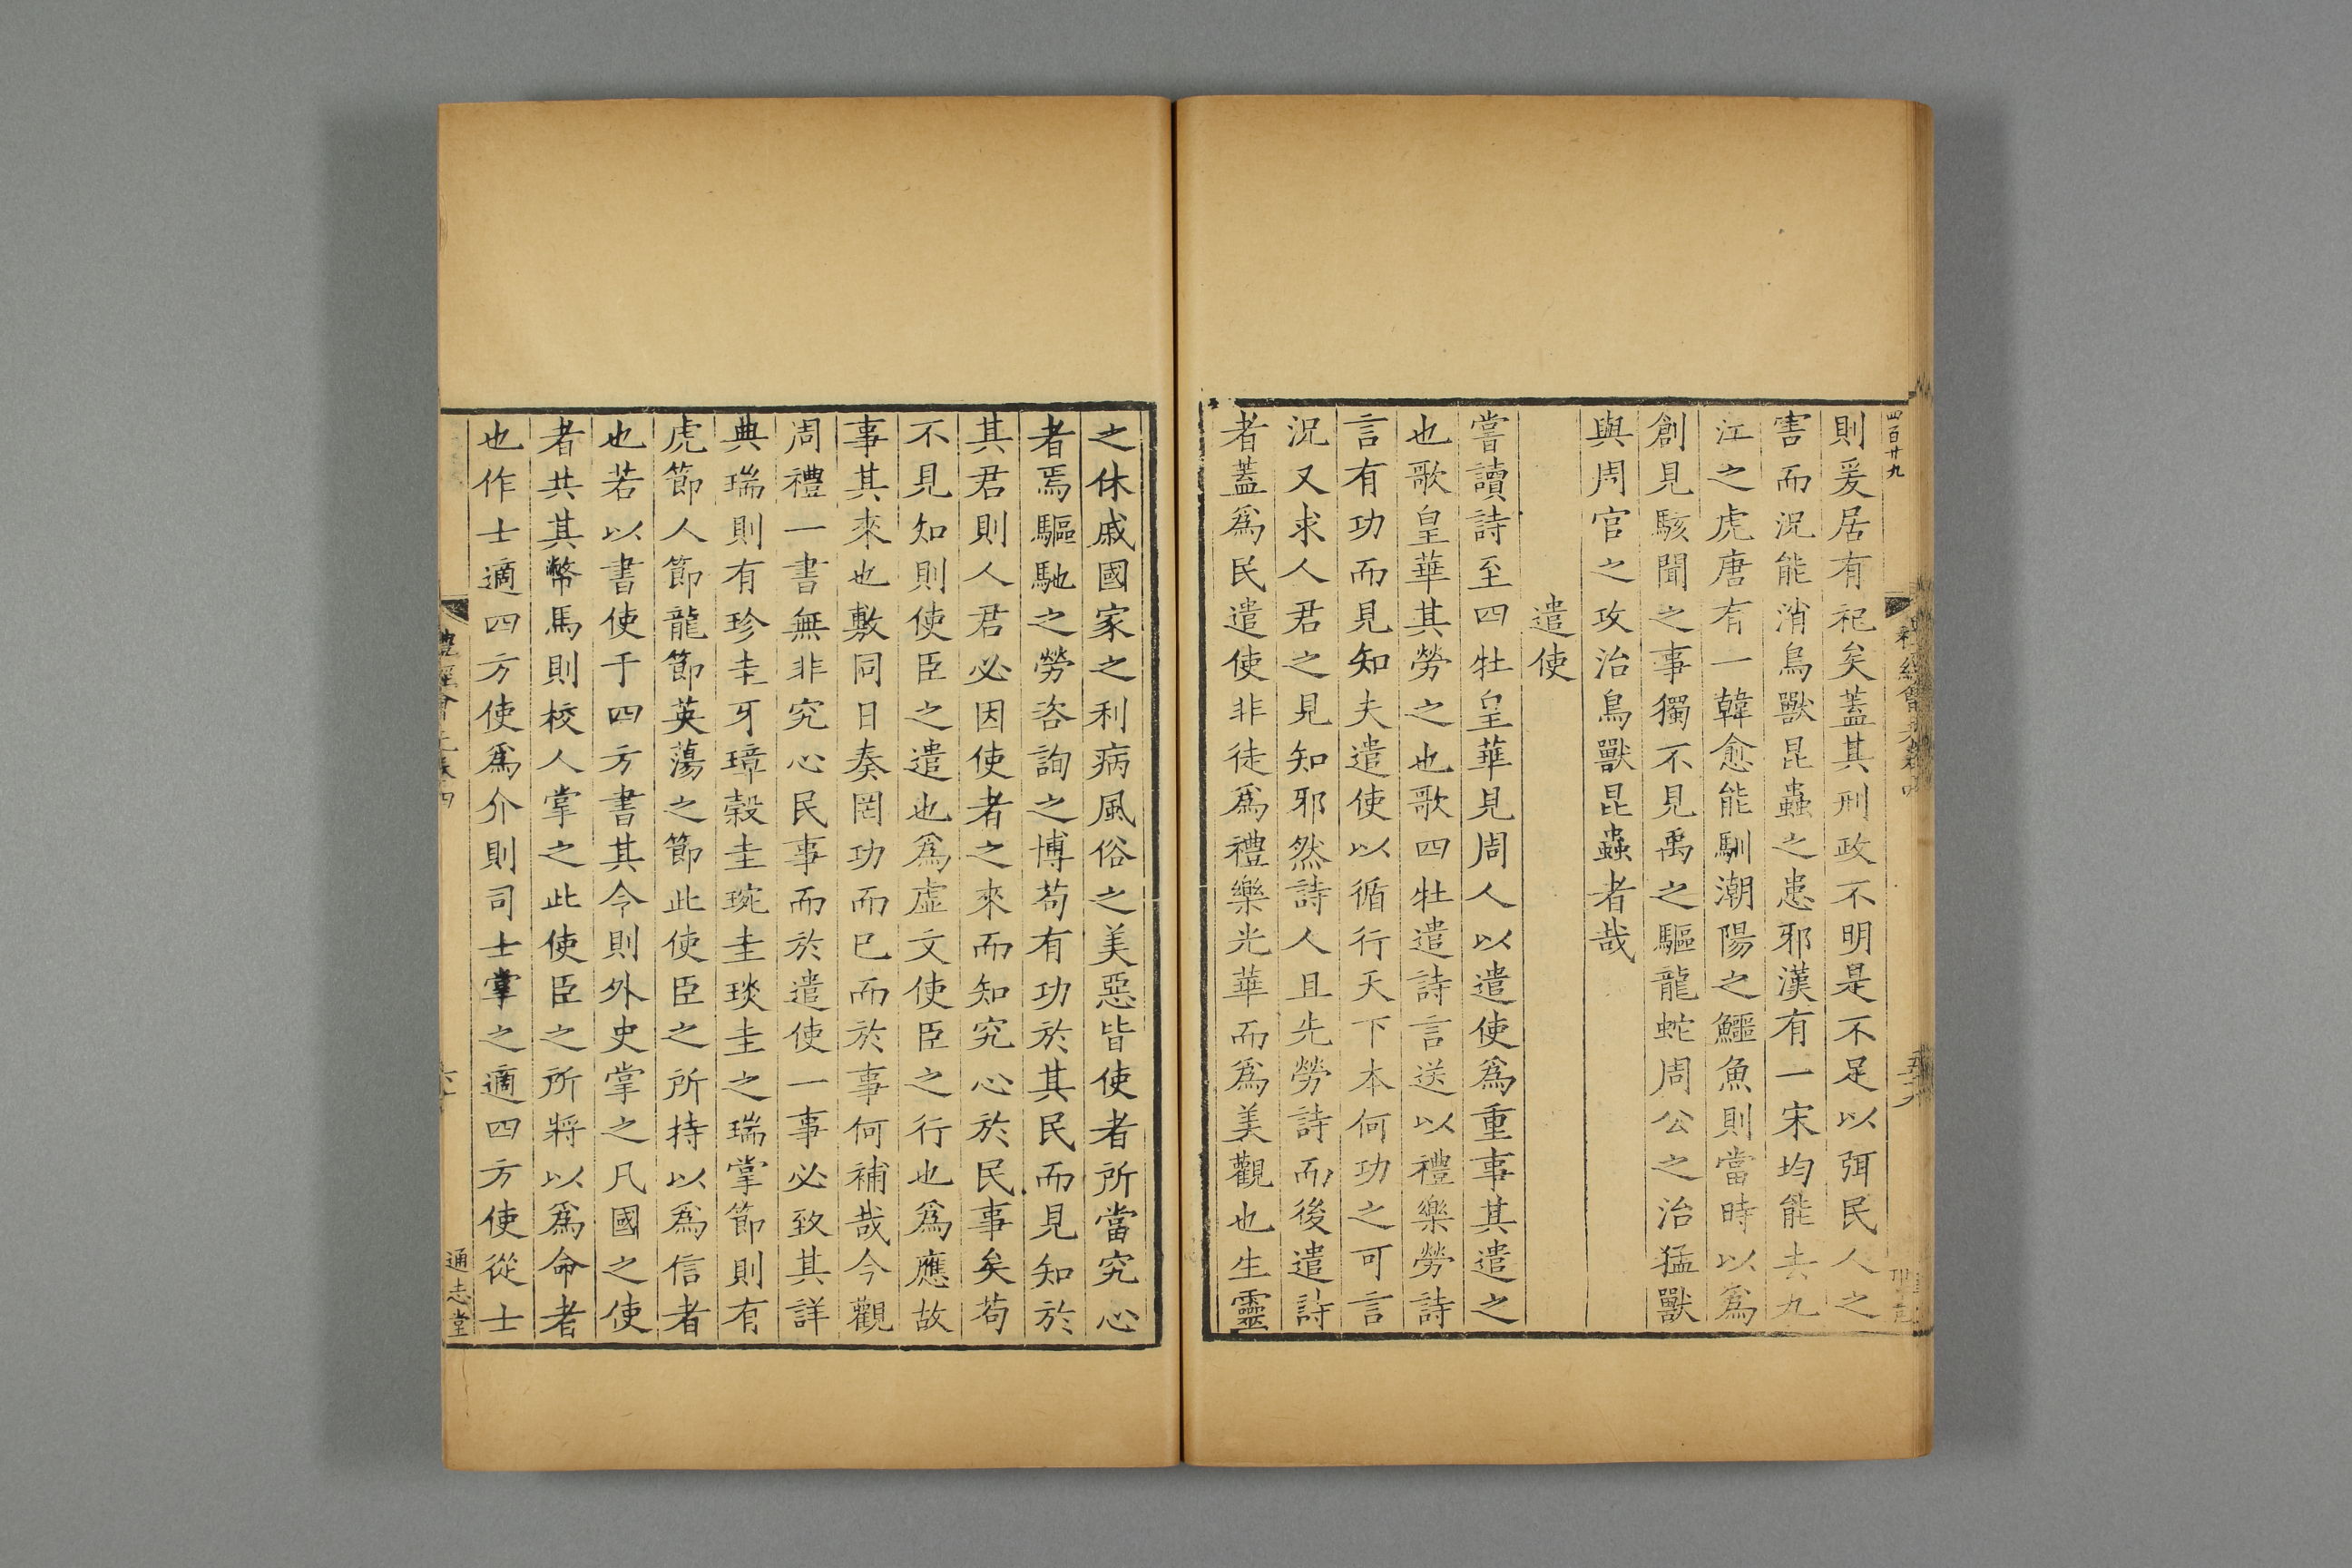 四百廿九
則爰居有祀矣蓋其刑政不明是不足以弭民人之
害而況能消鳥獸昆蟲之患邪漢有一宋均能去九
江之虎唐有一韓愈能馴潮陽之鱷魚則當時以爲
創見駭聞之事獨不見禹之驅龍蛇周公之治猛獸
與周官之攻治鳥獸昆蟲者哉
遣使
嘗讀詩至四牡皇華見周人以遣使爲重事其遣之
也歌皇華其勞之也歌四牡遣詩言送以禮樂勞詩
言有功而見知夫遣使以循行天下本何功之可言
況又求人君之見知邪然詩人且先勞詩而後遣詩
者蓋爲民遣使非徒爲禮樂光華而爲美觀也生靈
之休戚國家之利病風俗之美惡皆使者所當究心
者焉驅馳之勞咨詢之博苟有功於其民而見知於
其君則人君必因使者之來而知究心於民事矣苟
不見知則使臣之遣也爲虛文使臣之行也爲應故
事其來也敷同日奏罔功而已而於事何補哉今觀
周禮一書無非究心民事而於遣使一事必致其詳
典瑞則有珍圭牙璋榖圭琬圭琰圭之瑞掌節則有
虎節人節龍節英蕩之節此使臣之所持以爲信者
也若以書使于四方書其令則外史掌之凡國之使
者共其幣馬則校人掌之此使臣之所將以爲命者
也作士適四方使爲介則司士掌之適四方使從士
通志堂